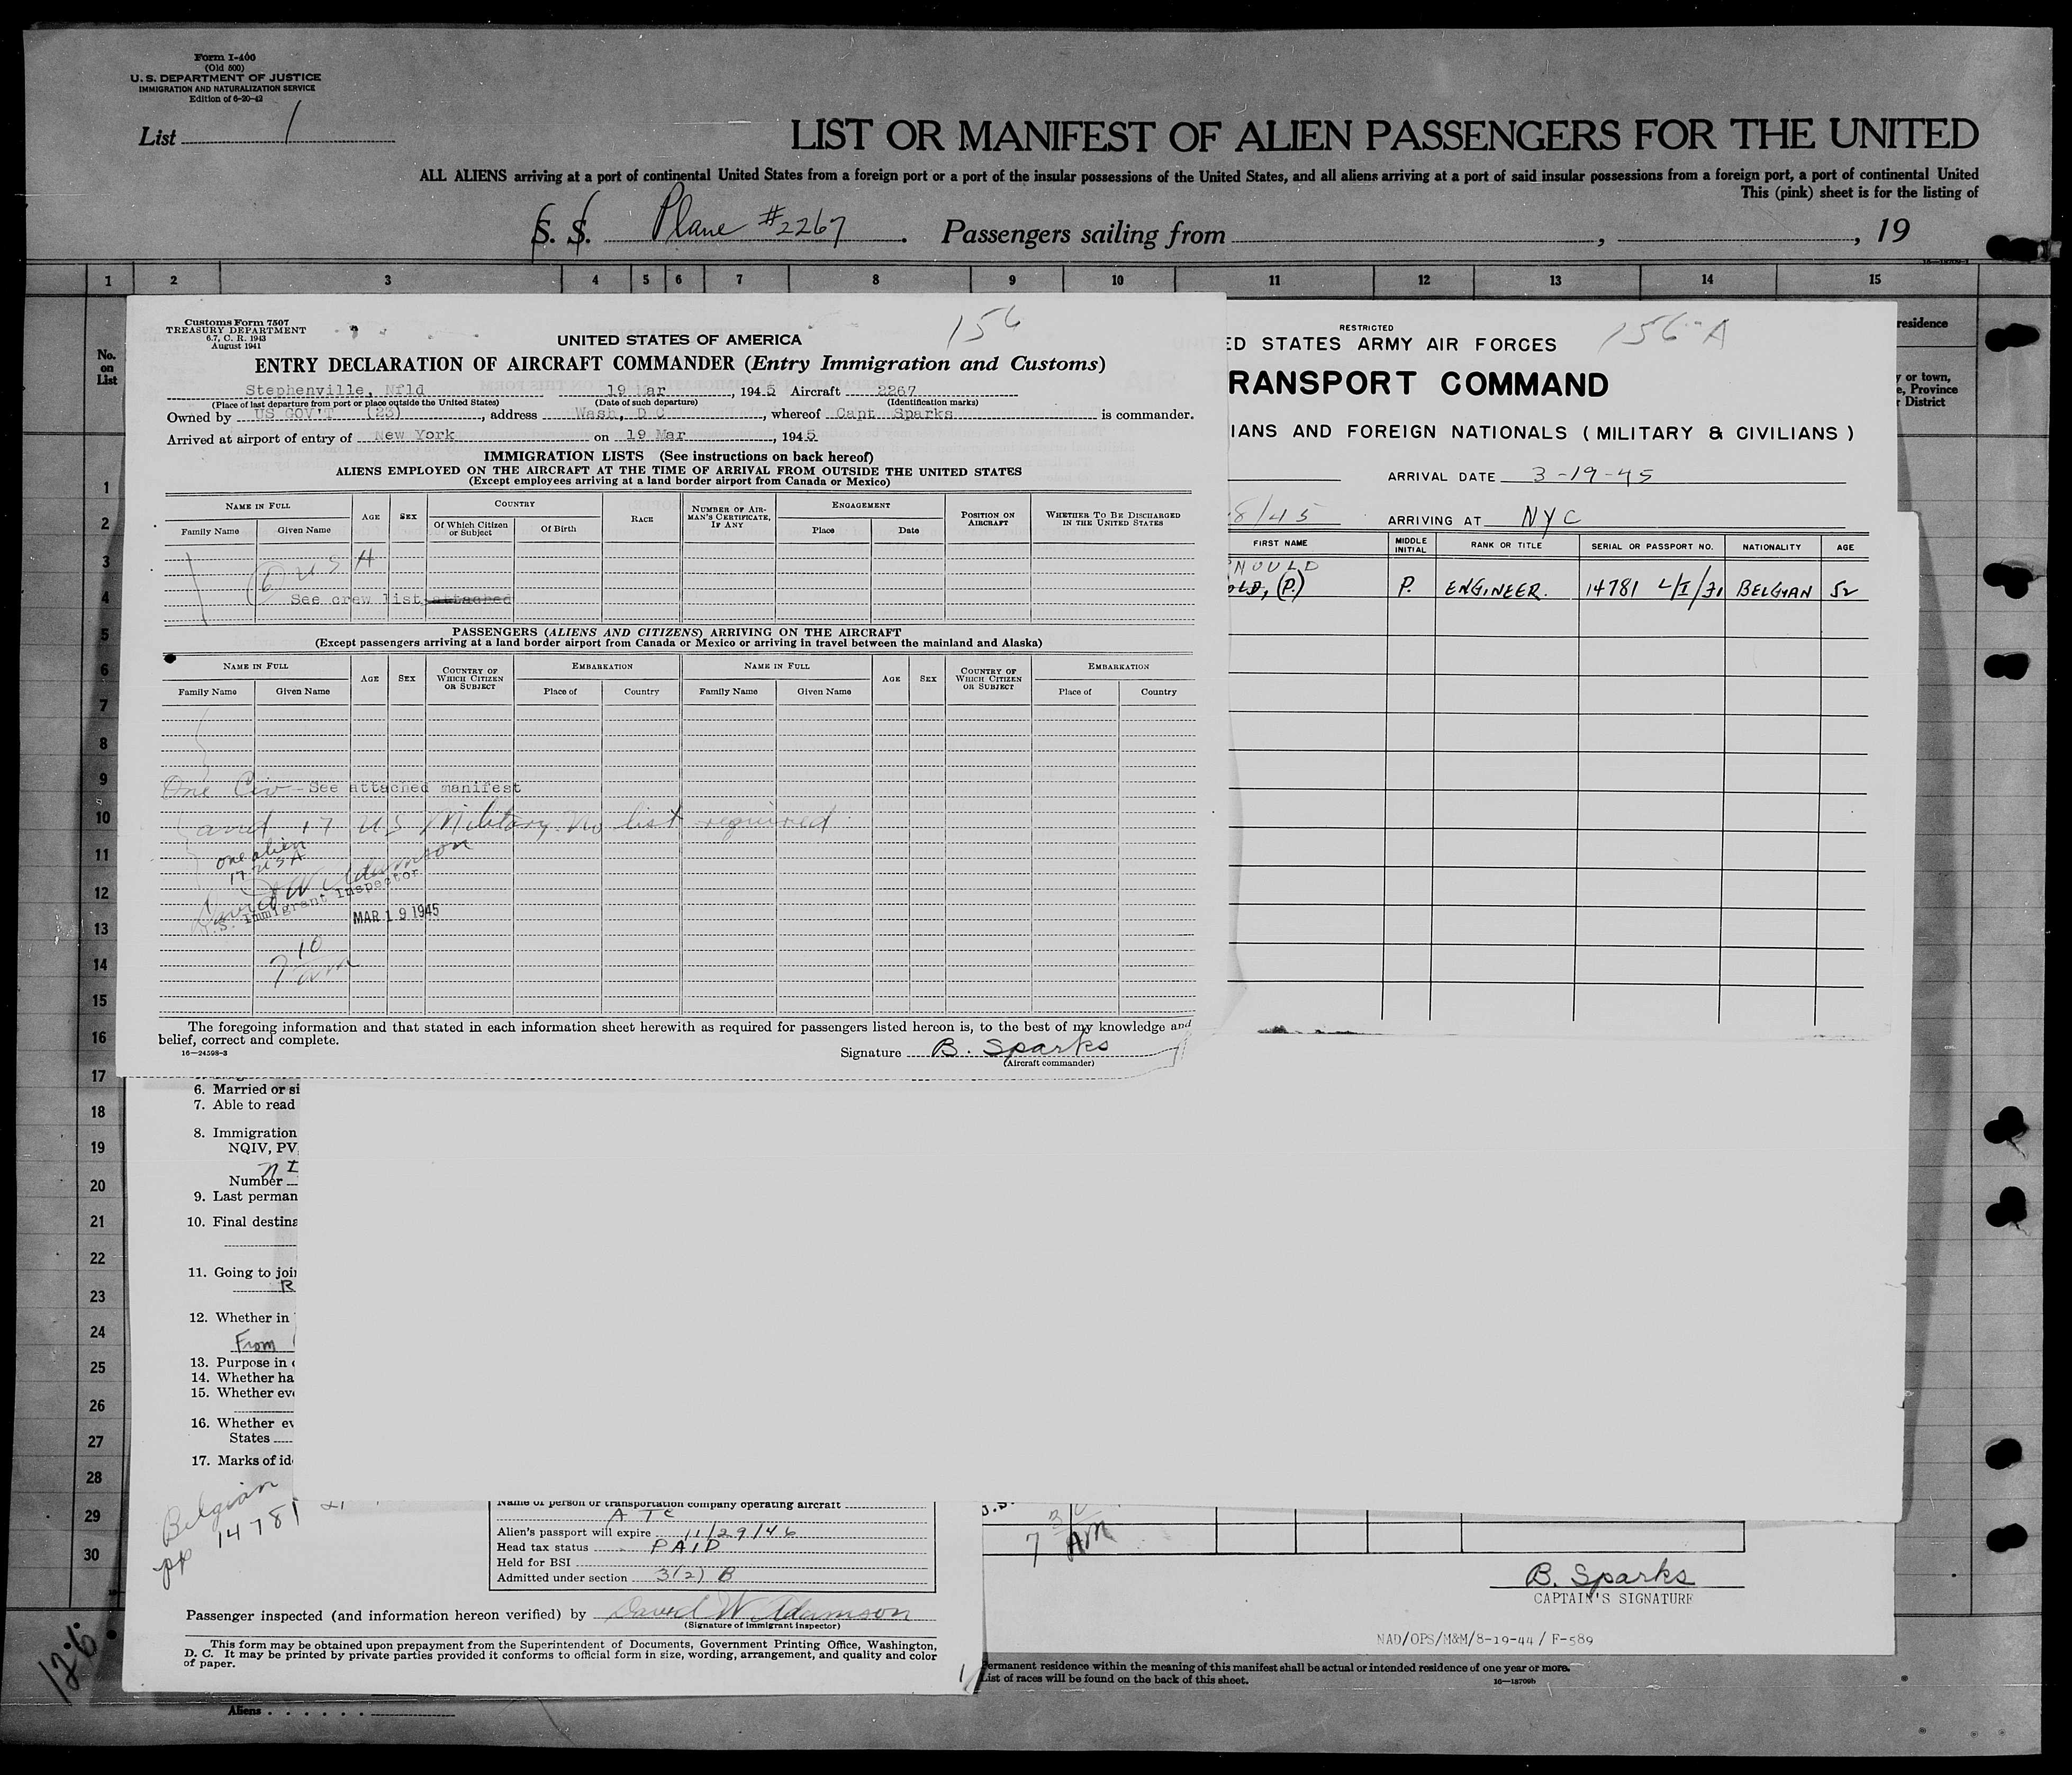 Form I-400
(Old 500)
U. S. DEPARTMENT OF JUSTICE
IMMIGRATION AND NATURALIZATION SERVICE
Edition of 6-20-42
List 1
LIST OR MANIFEST OF ALIEN PASSENGERS FOR THE UNITED
ALL ALIENS arriving at a port of continental United States from a foreign port or a port of the insular possessions of the United States, and all aliens arriving at a port of said insular possessions from a foreign port, a port of continental United
This (pink) sheet is for the listing of
S. S. Plane #2267. Passengers sailing from , , 19
1 2 3 4 5 6 7 8 9 10 11 12 13 14 15
No.
on
List
residence
y or town,
e, Province
r District
1
2
3
4
5
6
7
8
9
10
11
12
13
14
15
16
17
18
19
20
21
22
23
24
25
26
27
28
29
30
Customs Form 7507
TREASURY DEPARTMENT
6.7, C. R. 1943
August 1941
156
UNITED STATES OF AMERICA
ENTRY DECLARATION OF AIRCRAFT COMMANDER (Entry Immigration and Customs)
Stephenville, Nfld 19 ar, 1945 Aircraft 2267
(Place of last departure from port or place outside the United States) (Date of such departure) (Identification marks)
Owned by US GOV'T (23), address Wash, D C, whereof Capt Sparks is commander.
Arrived at airport of entry of New York on 19 Mar, 1945
IMMIGRATION LISTS (See instructions on back hereof)
ALIENS EMPLOYED ON THE AIRCRAFT AT THE TIME OF ARRIVAL FROM OUTSIDE THE UNITED STATES
(Except employees arriving at a land border airport from Canada or Mexico)
NAME IN FULL AGE SEX COUNTRY RACE NUMBER OF AIRMAN'S CERTIFICATE, IF ANY ENGAGEMENT POSITION ON AIRCRAFT WHETHER TO BE DISCHARGED IN THE UNITED STATES
Family Name Given Name Of Which Citizen or Subject Of Birth Place Date
(6) U S A
See crew list attached
PASSENGERS (ALIENS AND CITIZENS) ARRIVING ON THE AIRCRAFT
(Except passengers arriving at a land border airport from Canada or Mexico or arriving in travel between the mainland and Alaska)
NAME IN FULL AGE SEX COUNTRY OF WHICH CITIZEN OR SUBJECT EMBARKATION NAME IN FULL AGE SEX COUNTRY OF WHICH CITIZEN OR SUBJECT EMBARKATION
Family Name Given Name Place of Country Family Name Given Name Place of Country
One Civ - See attached manifest
and 17 US Military no list required
one alien
17 USA
David W Adamson
U.S. Immigrant Inspector
MAR 19 1945
7 10 am
The foregoing information and that stated in each information sheet herewith as required for passengers listed hereon is, to the best of my knowledge and
belief, correct and complete.
16—24598-3
Signature B. Sparks
(Aircraft commander)
RESTRICTED
ED STATES ARMY AIR FORCES
156-A
RANSPORT COMMAND
IANS AND FOREIGN NATIONALS ( MILITARY & CIVILIANS )
ARRIVAL DATE 3-19-45
8/45 ARRIVING AT NYC
FIRST NAME MIDDLE INITIAL RANK OR TITLE SERIAL OR PASSPORT NO. NATIONALITY AGE
NOULD
OLD, (P.) P. ENGINEER. 14781 4/I/31 BELGIAN 52
6. Married or si
7. Able to read
8. Immigration
NQIV, PV,
Number
9. Last perman
10. Final destina
11. Going to join
R
12. Whether in
From
13. Purpose in c
14. Whether ha
15. Whether eve
16. Whether ev
States
17. Marks of id
Belgian
pp 14781
Name of person or transportation company operating aircraft
A T C
Alien's passport will expire 11/29/46
Head tax status PAID
Held for BSI
Admitted under section 3(2) B
Passenger inspected (and information hereon verified) by David W. Adamson
(Signature of immigrant inspector)
This form may be obtained upon prepayment from the Superintendent of Documents, Government Printing Office, Washington,
D. C. It may be printed by private parties provided it conforms to official form in size, wording, arrangement, and quality and color
of paper.
7 AM
B. Sparks
CAPTAIN'S SIGNATURE
NAD/OPS/M&M/8-19-44 / F-589
ermanent residence within the meaning of this manifest shall be actual or intended residence of one year or more.
List of races will be found on the back of this sheet.
16—18709b
126
Aliens